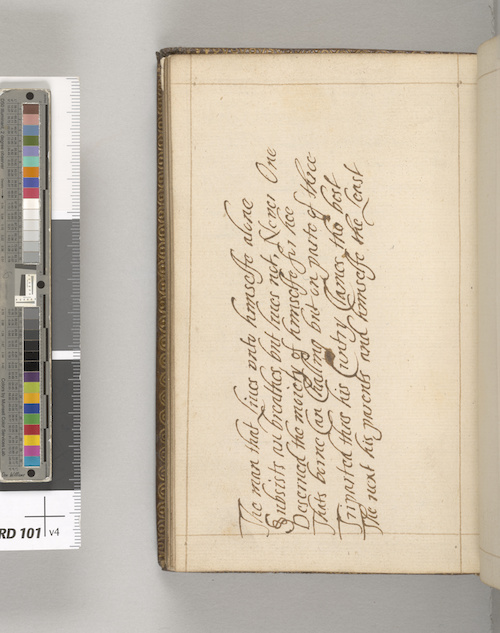 The man that liues vnto himselfe alone
Subsists and breathes but liues not, Neuer One
Deserued the moiety of himselfe for hee
Thats borne Can Challeng but on parte of three
Triparted thus his Cuntry Clames the best
The next his parents and himselfe the Least
RD 101 v4